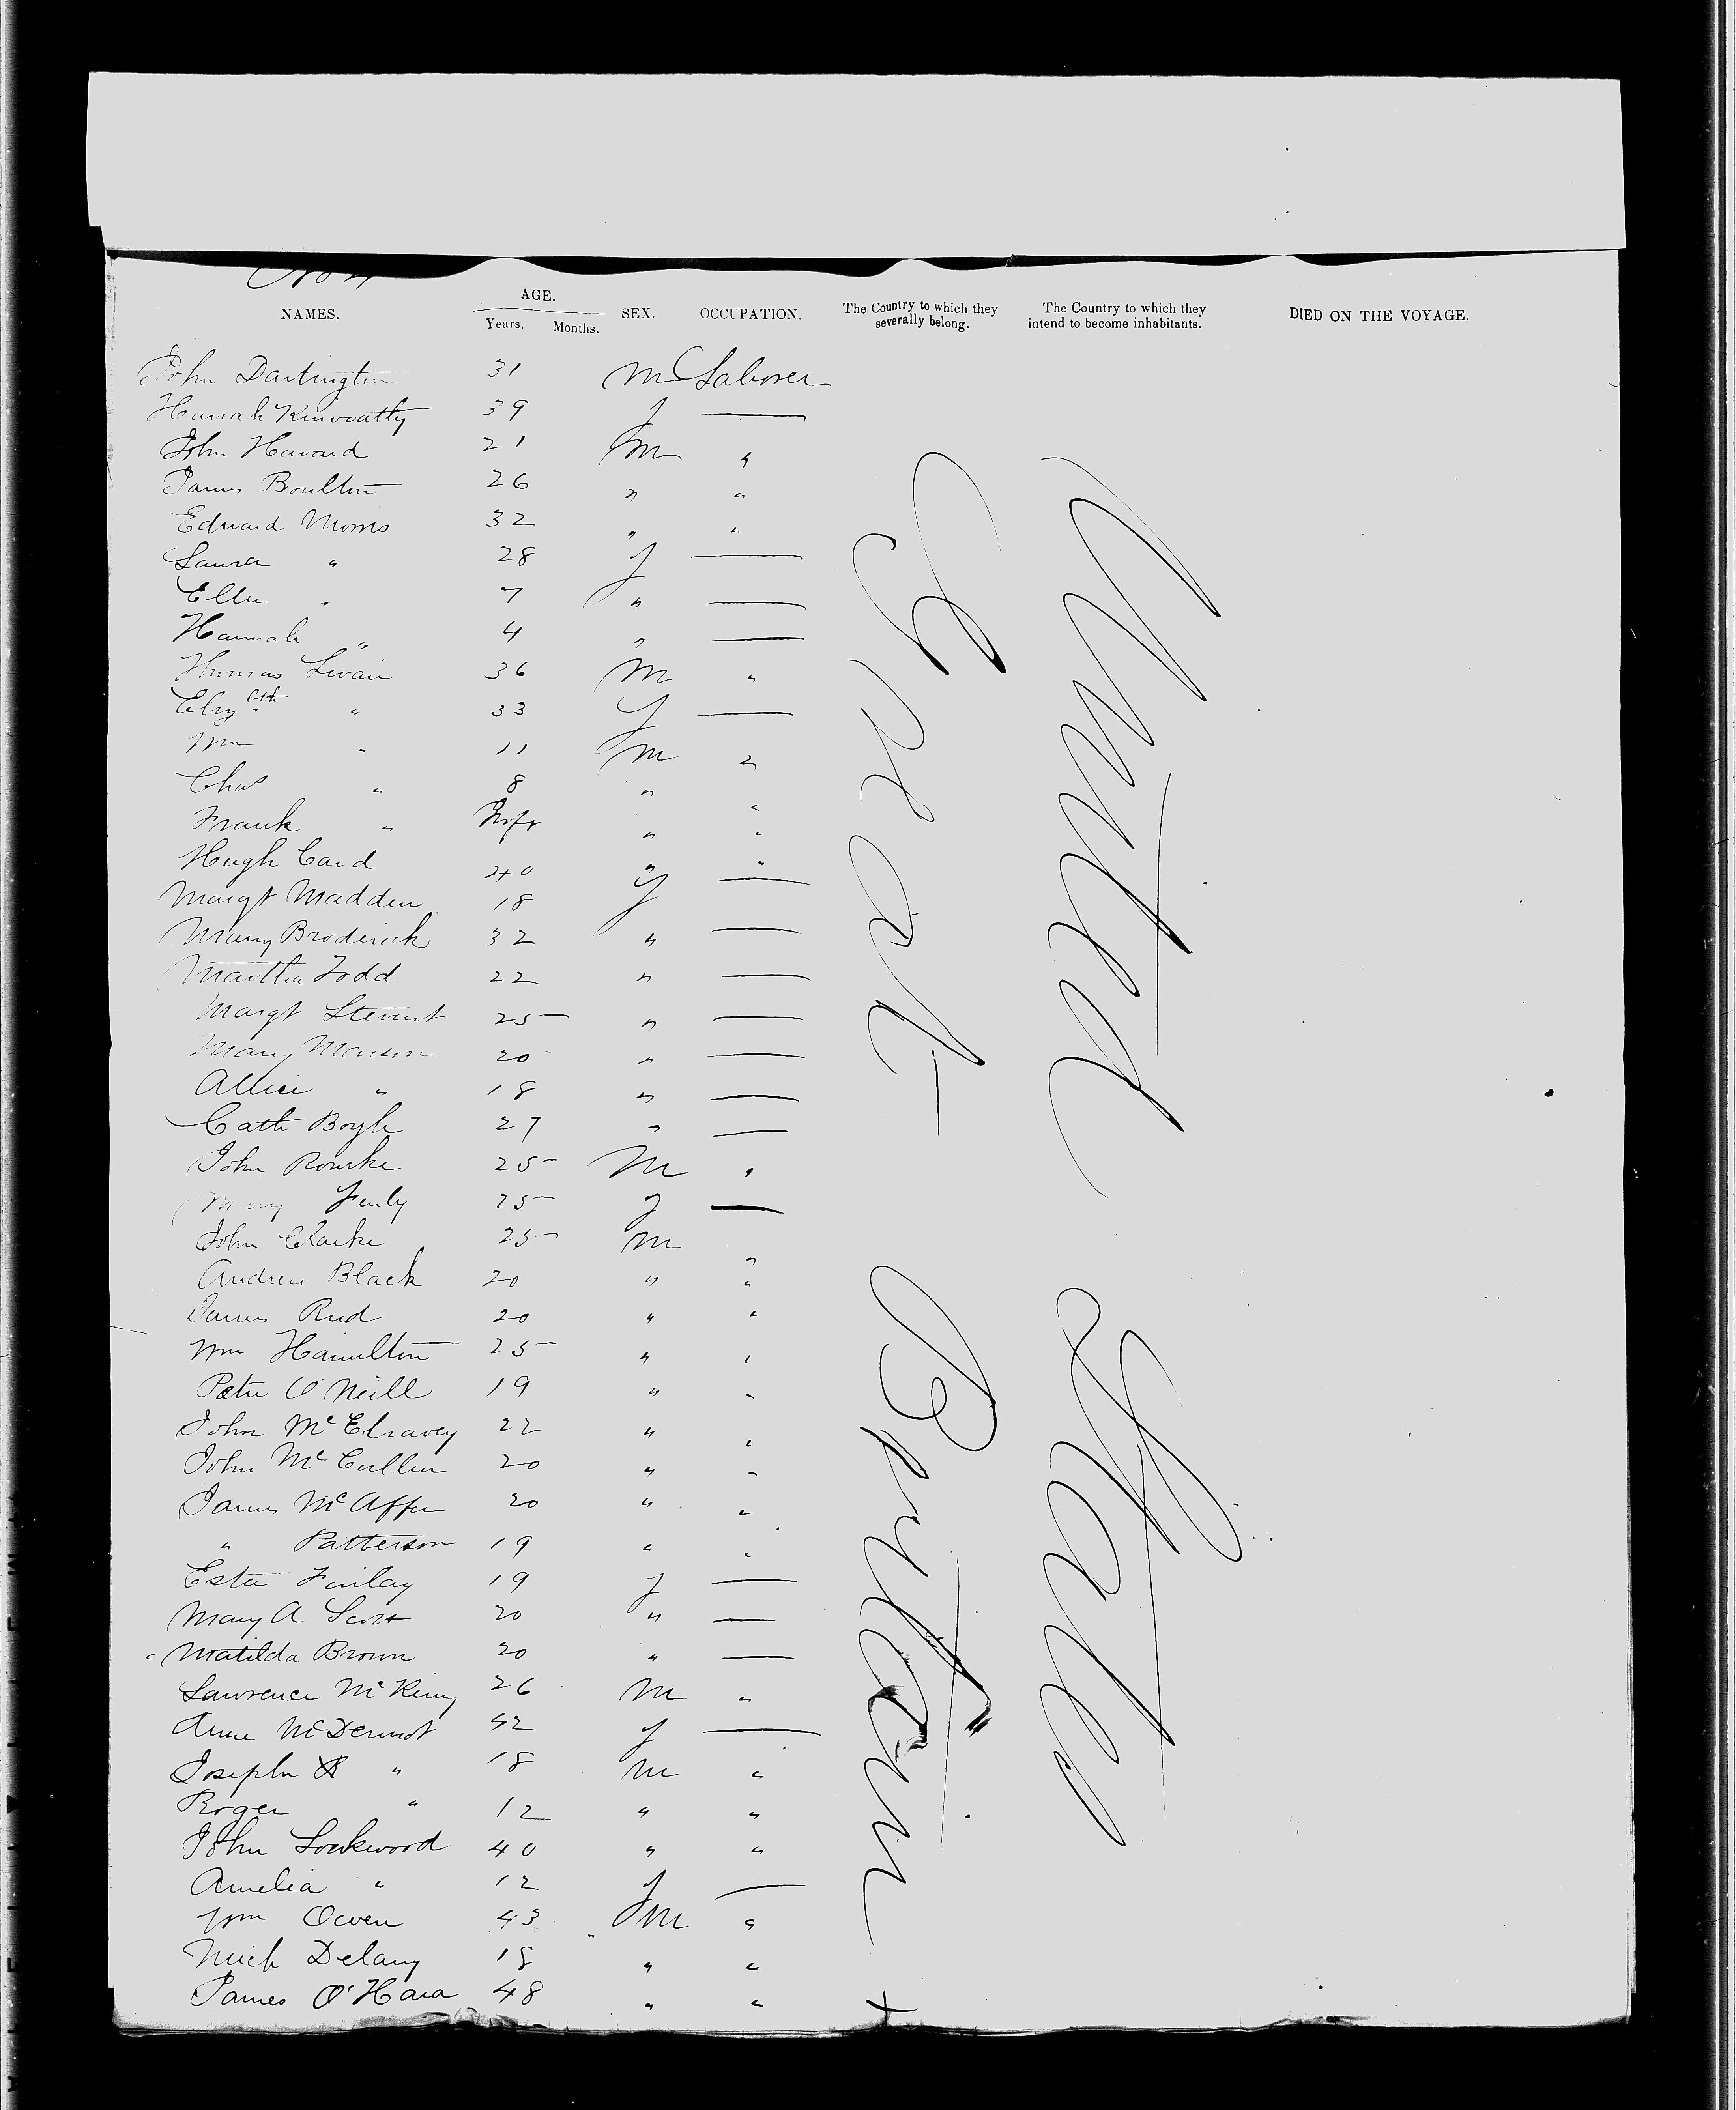 No 4
NAMES. AGE. Years. Months. SEX. OCCUPATION. The Country to which they severally belong. The Country to which they intend to become inhabitants. DIED ON THE VOYAGE.
John Dartington 31 M Laborer
Hanah 39 f —
John Howard 21 M "
James Boulton 26 " "
Edward Morris 32 " "
Laura " 28 f —
Ellen " 7 " —
Hannah " 4 " —
Thomas Swain 36 M "
Elizath " 33 f —
Wm " 11 M "
Chas " 8 " "
Frank " Inft " "
Hugh Caird 40 " "
Margt Madden 18 f —
Mary Broderick 32 " —
Martha Todd 22 " —
Margt Stewart 25 " —
Mary Manson 20 " —
Allice " 18 " —
Cath Boyle 27 " —
John Rourke 25 M "
Mary Fenly 25 f —
John Clarke 25 M "
Andrew Black 20 " "
James Reid 20 " "
Wm Hamilton 25 " "
Peter O'Neill 19 " "
John McElravey 22 " "
John McCullen 20 " "
James McAffee 20 " "
" Patterson 19 " "
Ester Finlay 19 f —
Mary A Scott 20 " —
Matilda Brown 20 " —
Lawrence McKinny 26 M "
Anne McDermot 42 f —
Joseph " 18 M "
Roger " 12 " "
John Lockwood 40 " "
Amelia " 12 f —
Wm Owen 43 M "
Mich Delany 18 " "
James O'Hara 48 " "
Great Britain
United States